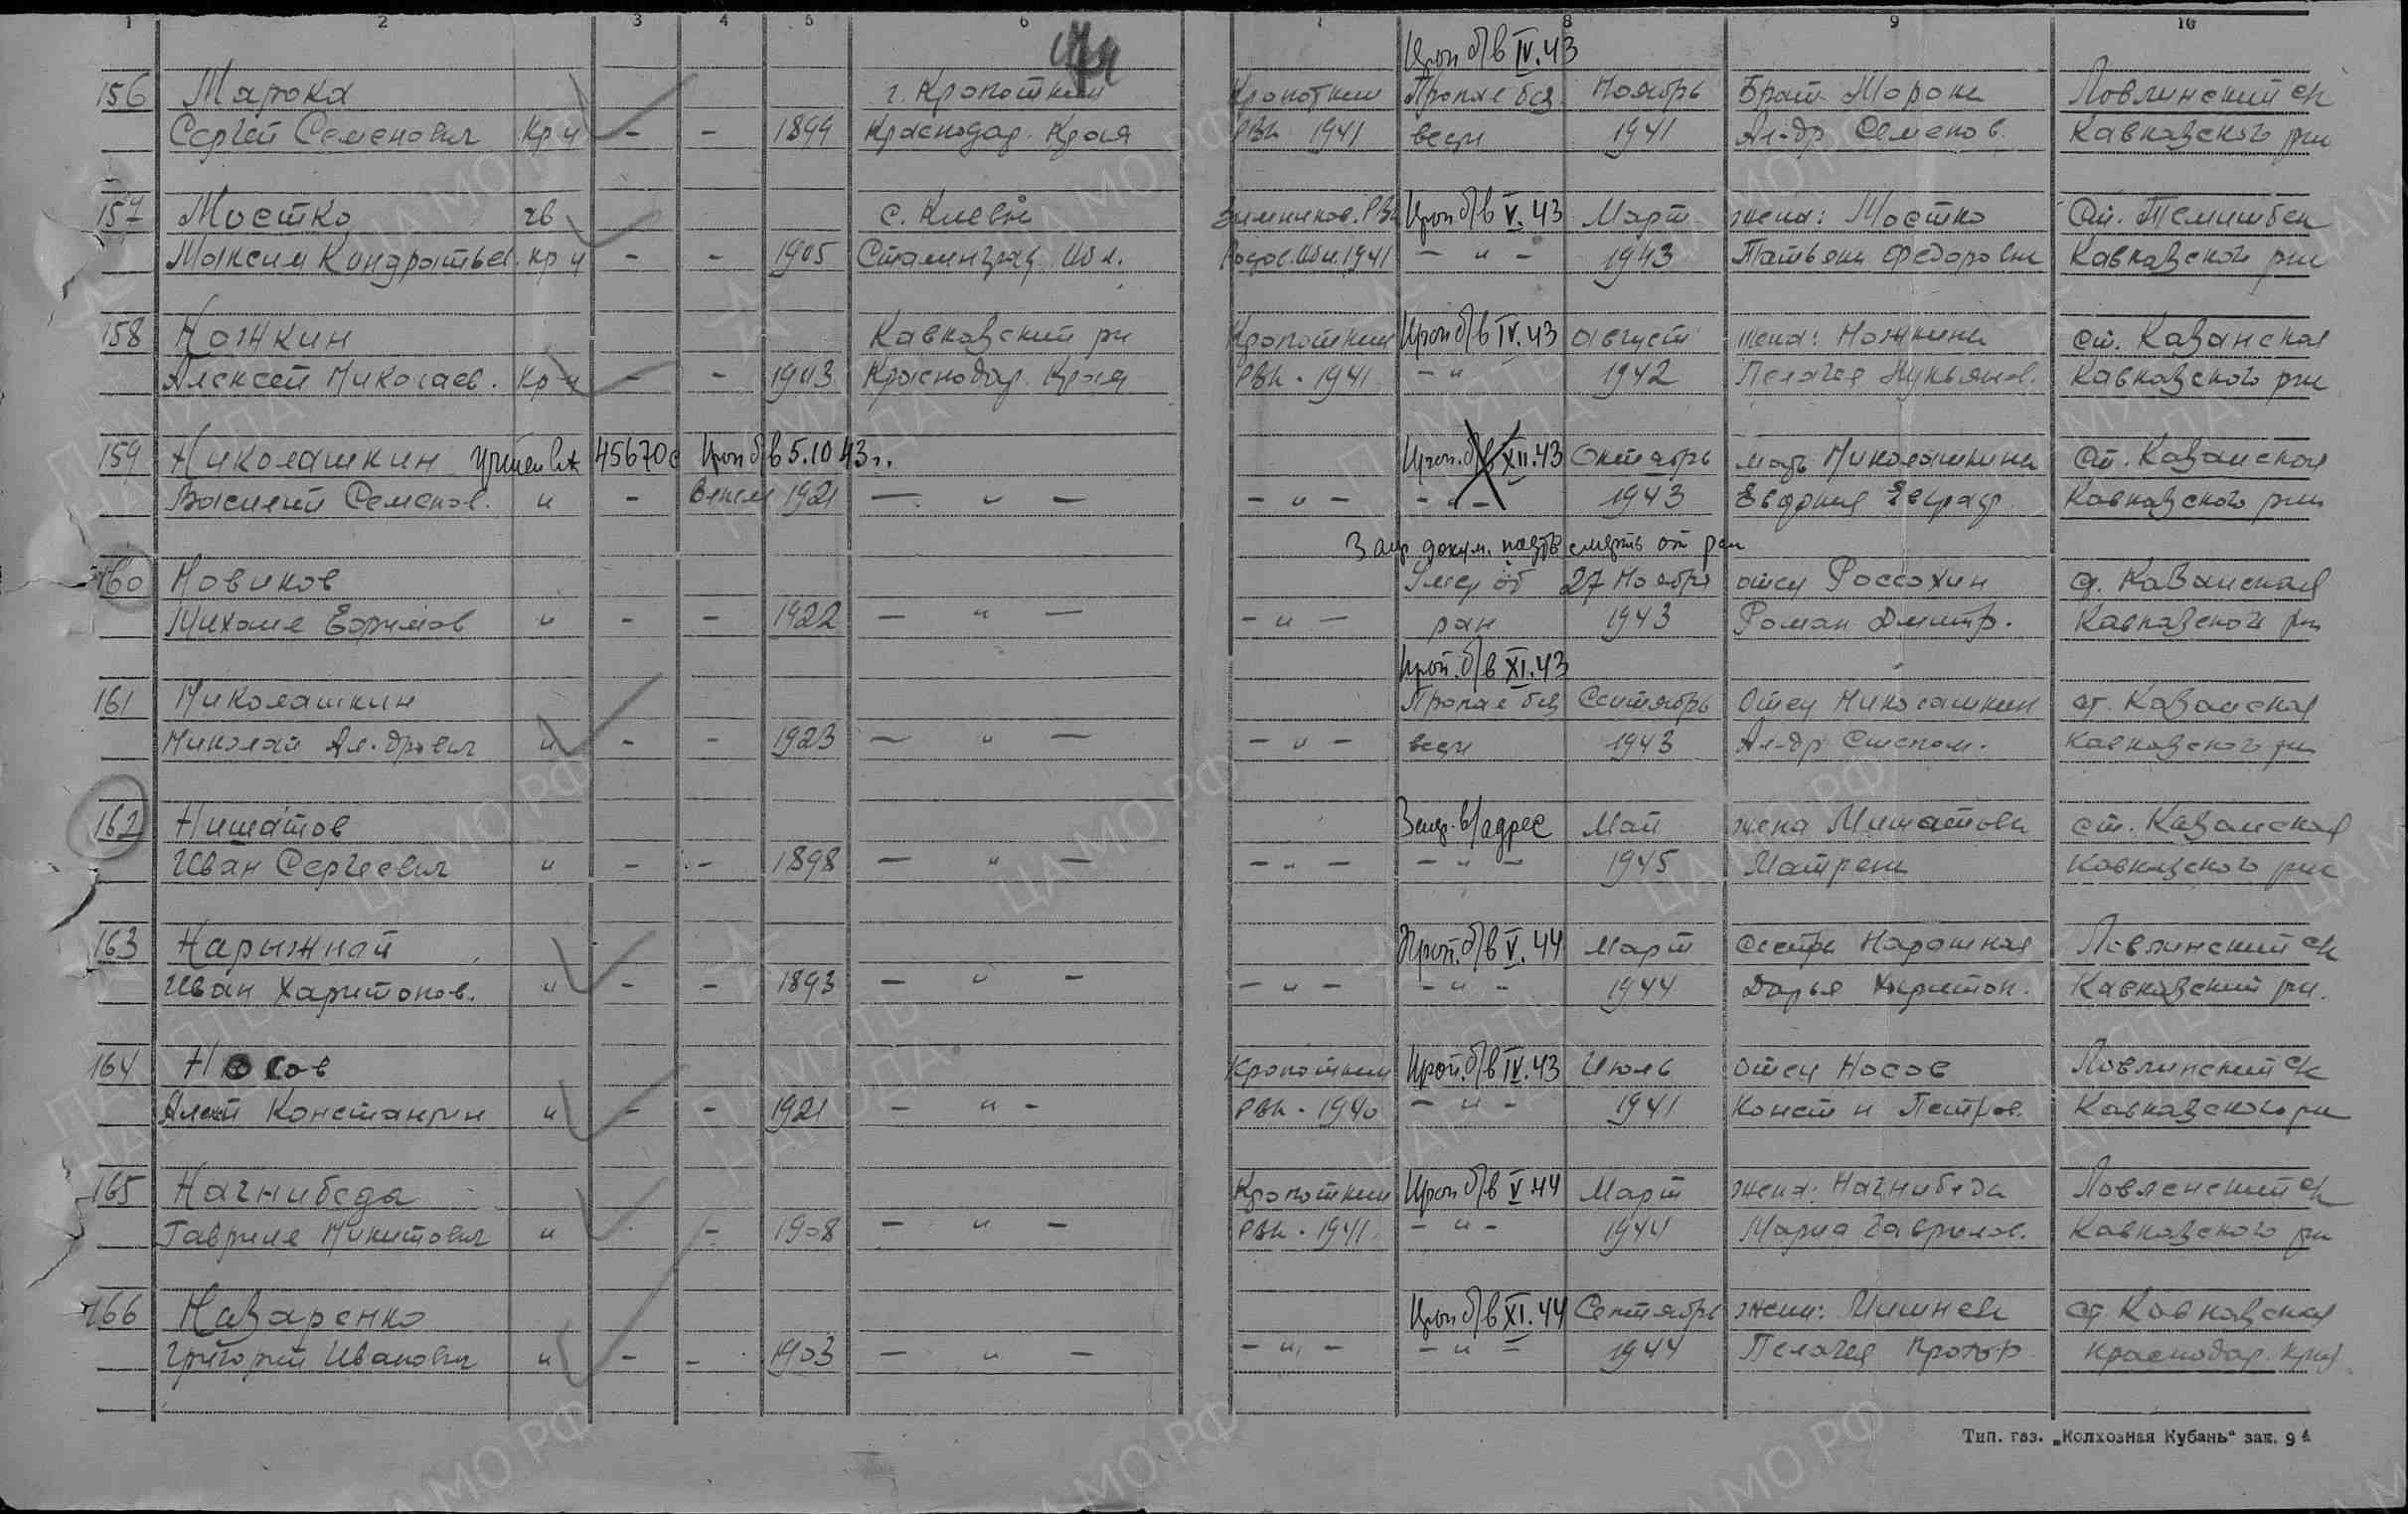 1 2 3 4 5 6 7 8 9 10
Проп б/в IV.43
156 Марока г. Кропоткин Кропоткин Пропал без Ноябрь Брат Морока Ловлинский с/с
Сергей Семенович Кр-ц - - 1899 Краснодар. Края РВК 1941 вести 1941 Ал-др Семенов. Кавказского р-на
157 Мостко гв с. Киевка Зимников. РВК Проп б/в V.43 Март жена: Мостко ст. Темишбек
Максим Кондратьев. кр-ц - - 1905 Сталинград. Обл. Ростов. Обл. 1941 - " - 1943 Татьяна Федоровна Кавказского р-на
158 Ножкин Кавказский р-н Кропоткин Проп б/в IV.43 Август жена: Ножкина ст. Казанская
Алексей Николаев. Кр-ц - - 1903 Краснодар. Края РВК - 1941 - " 1942 Пелагея Лукьянов. Кавказского р-на
159 Николашкин 45670с Проп б/в 5.10.43г. Проп. б/в XII.43 Октябрь мать Николашкина ст. Казанская
Василий Семенов. " - 1921 - " - - " - - " - 1943 Евдокия Евграф. Кавказского р-на
Загр. докум. подтв смерть от ран
160 Новиков Умер от 27 Ноября отец Россохин ст. Казанская
Михаил Ефимов " - - 1922 - " - - " - ран 1943 Роман Дмитр. Кавказского р-на
Проп. б/в XI.43
161 Николашкин Пропал без Сентябрь Отец Николашкин ст. Казанская
Николай Ал-дрович " - - 1923 - " - - " - вести 1943 Ал-др Степан. Кавказского р-на
162 Ниматов Загр. в/адрес Май жена Ниматова ст. Казанская
Иван Сергеевич " - - 1898 - " - - " - - " - 1945 Матрена Кавказского р-на
163 Нарыжной Проп. б/в V.44 Март Сестра Нарожная Ловлинский с/с
Иван Харитонов. " - - 1893 - " - - " - - " - 1944 Дарья Харитон. Кавказский р-н.
164 Носов Кропоткин Проп. б/в IV.43 Июль отец Носов Ловлинский с/с
Алексей Константин " - - 1921 - " - РВК - 1940 - " - 1941 Конст-н Петров. Кавказского р-на
165 Нагнибеда Кропоткин Проп б/в V.44 Март жена: Нагнибеда Ловленский с/с
Гавриил Никитович " - 1908 - " - РВК - 1941 - " - 1944 Мария Гаврилов. Кавказского р-на
166 Назаренко Проп б/в XI.44 Сентябрь жена: ст Кавказская
Григорий Иванович " - - 1903 - " - - " - - " - 1944 Пелагея Прокоф Краснодар. края
Тип. газ. „Колхозная Кубань" зак. 94